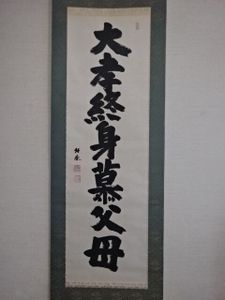 大孝終身慕父母